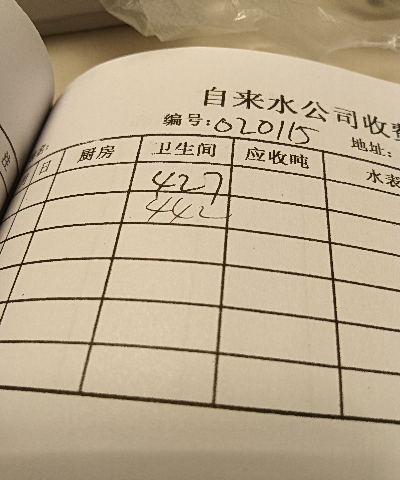 自来水公司收费
编号:020115 地址:
日 厨房 卫生间 应收吨 水装
427
442